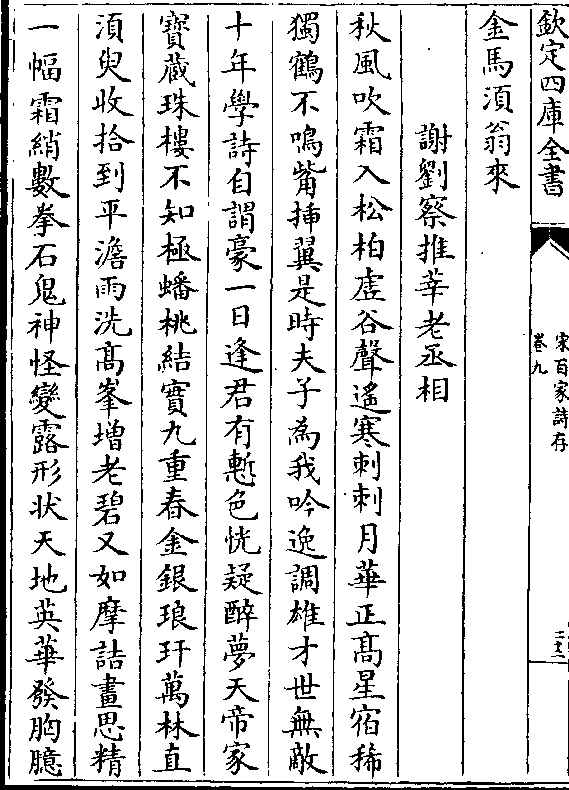 欽定四庫全書
宋百家詩存
卷九
金馬須翁來
謝劉察推莘老丞相
秋風吹霜入松柏虛谷聲遙寒刺刺月華正髙星宿稀
獨鶴不鳴觜揷翼是時夫子為我吟逸調雄才世無敵
十年學詩自謂豪一日逢君有慙色恍疑醉夢天帝家
寶蔵珠樓不知極蟠桃結實九重春金銀琅玕萬林直
須臾收拾到平澹雨洗髙峯增老碧又如摩詰畫思精
一幅霜綃數拳石鬼神怪變露形状天地英華發胸臆